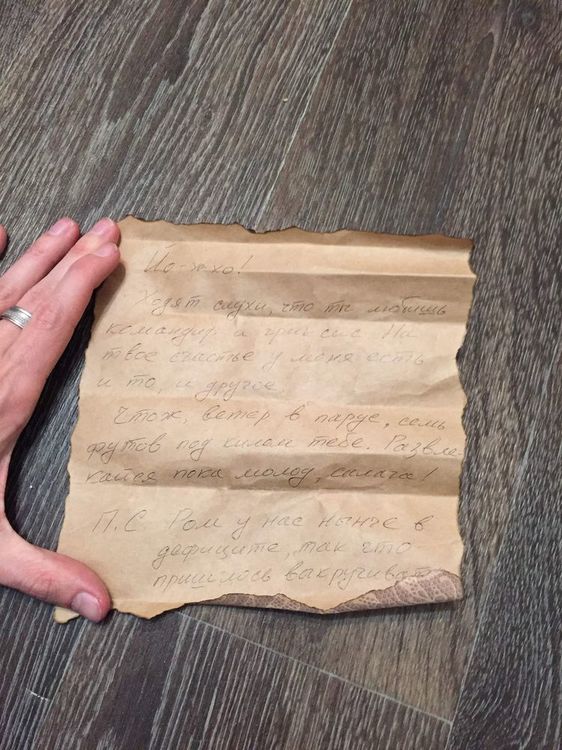 Йо-хо!
Ходят слухи, что ты любишь
командир а грин сис На
твое счастье у меня есть
и то, и другое.
Чтож, ветер в парус, семь
футов под килем тебе. Развле-
кайся пока молод, салага!
П.С Ром у нас нынче в
дефиците, так что
пришлось выкручиват